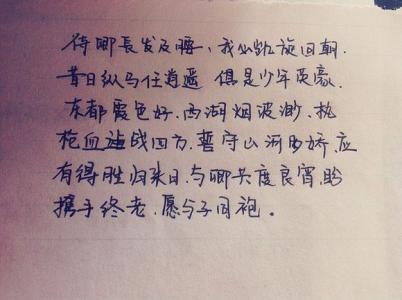 待卿長发及腰，我必凯旋回朝.
昔日纵马任逍遥 俱是少年英豪.
东都霞色好.西湖烟波渺.执
枪血战四方.誓守山河多娇.应
有得胜归来日.与卿共度良宵.盼
携手终老.愿与子同袍。